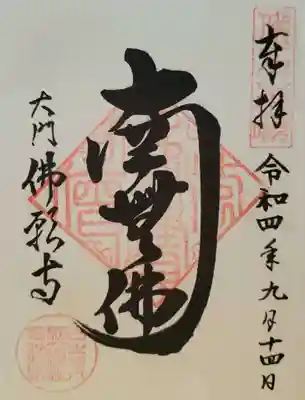 奉拝
令和四年九月十四日
南無佛
大門 佛願寺